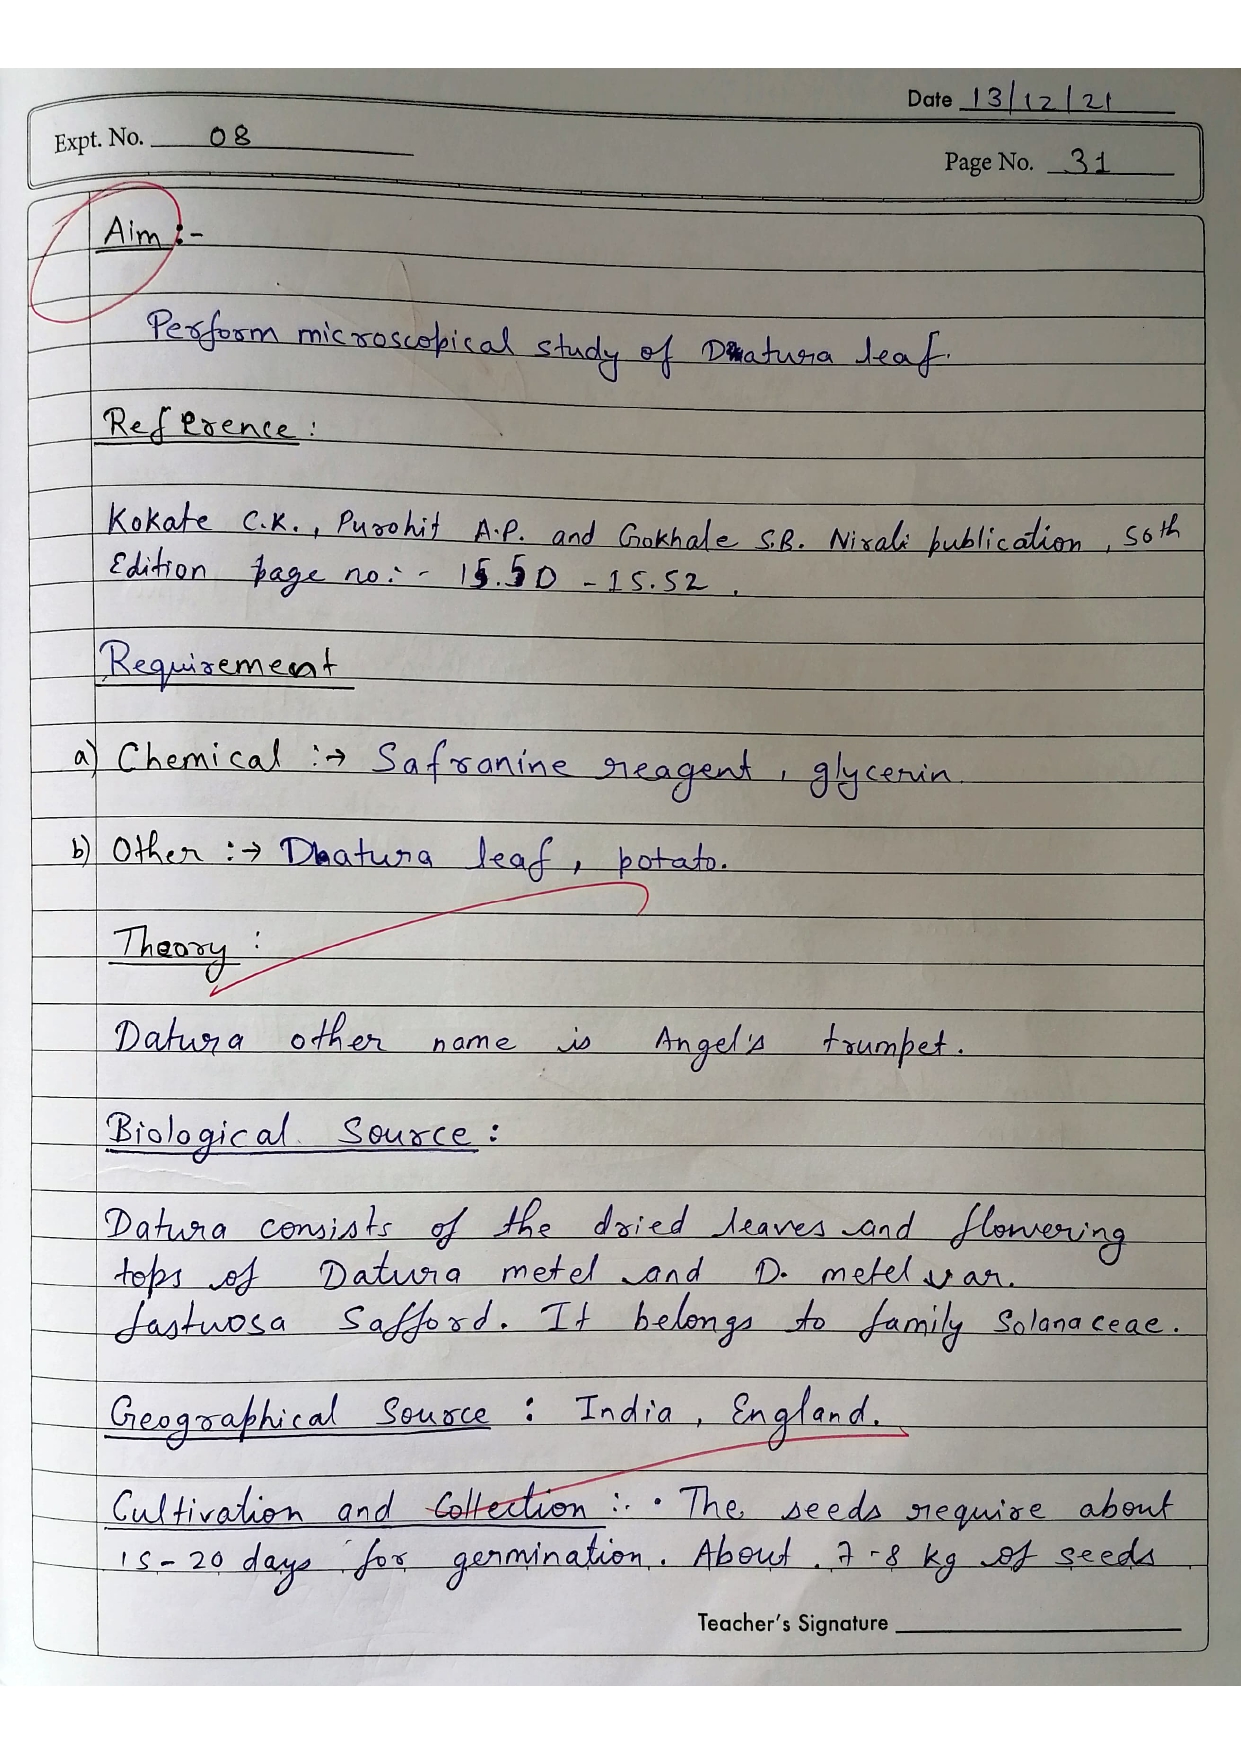 Date 13/12/21
Expt. No. 08
Page No. 31
Aim :-
Perform microscopical study of Datura leaf.
Reference :
Kokate C.K., Purohit A.P. and Gokhale S.B. Nirali publication, 50th
Edition page no:- 15.50 - 15.52.
Requirement
a) Chemical :→ Safranine reagent, glycerin.
b) Other :→ Datura leaf, potato.
Theory :
Datura other name is Angel's trumpet.
Biological Source :
Datura consists of the dried leaves and flowering
tops of Datura metel and D. metel var.
fastuosa Safford. It belongs to family Solanaceae.
Geographical Source : India, England.
Cultivation and Collection :. • The seeds require about
15-20 days for germination. About 7-8 kg of seeds
Teacher's Signature